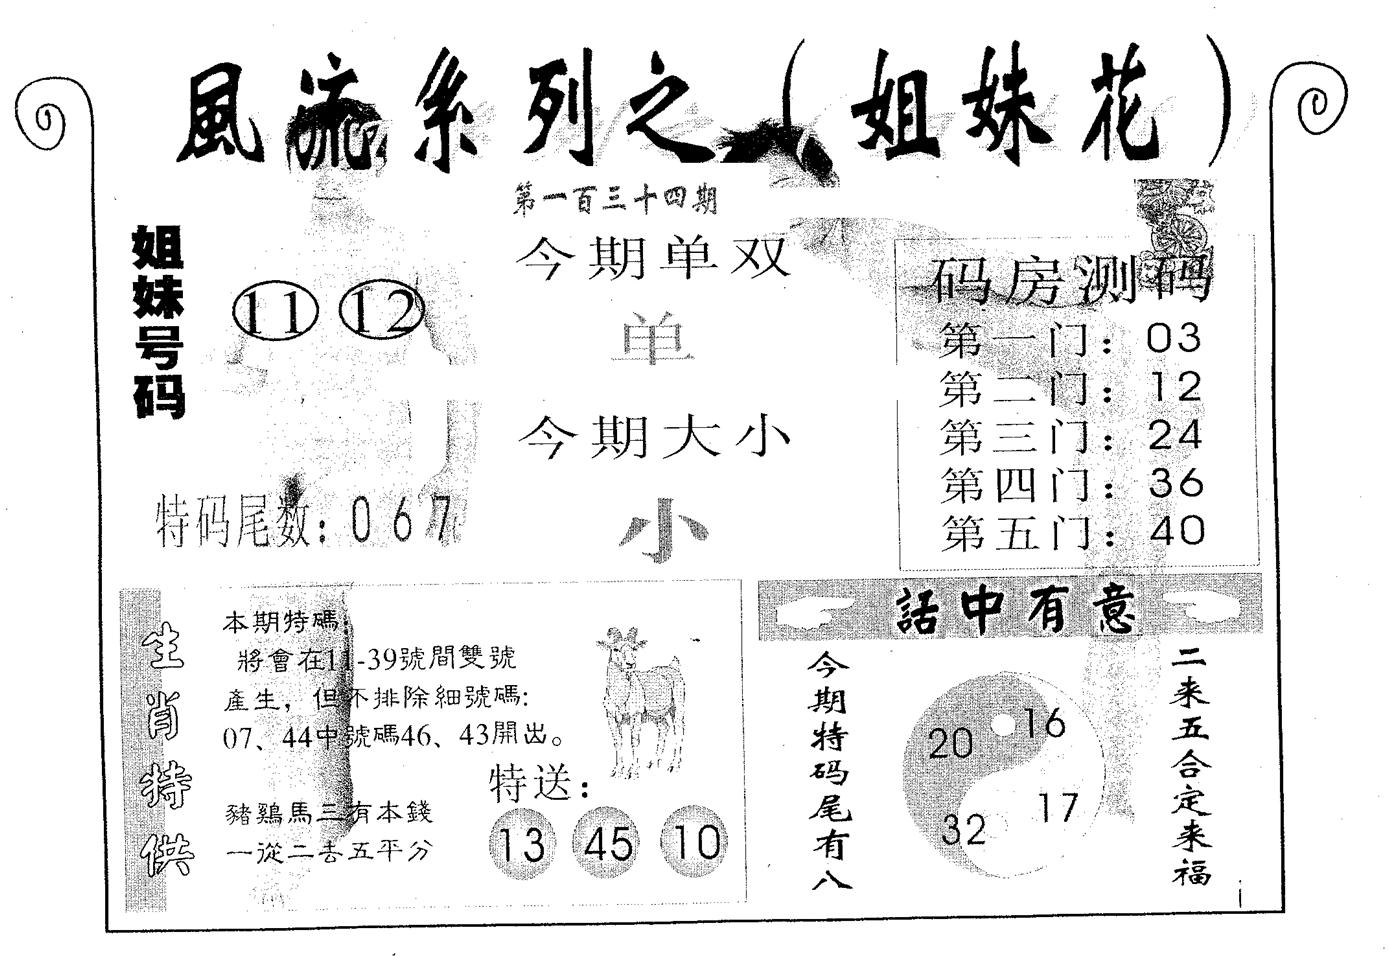 風流系列之（姐妹花）
第一百三十四期
姐妹号码
11 12
特码尾数：067
今期单双
单
今期大小
小
码房测码
第一门：03
第二门：12
第三门：24
第四门：36
第五门：40
生肖特供
本期特碼：
將會在11-39號間雙號
產生，但不排除細號碼:
07、44中號碼46、43開出。
豬鷄馬三有本錢
一從二去五平分
特送：
13 45 10
話中有意
今期特码尾有八
20 16
32 17
二来五合定来福